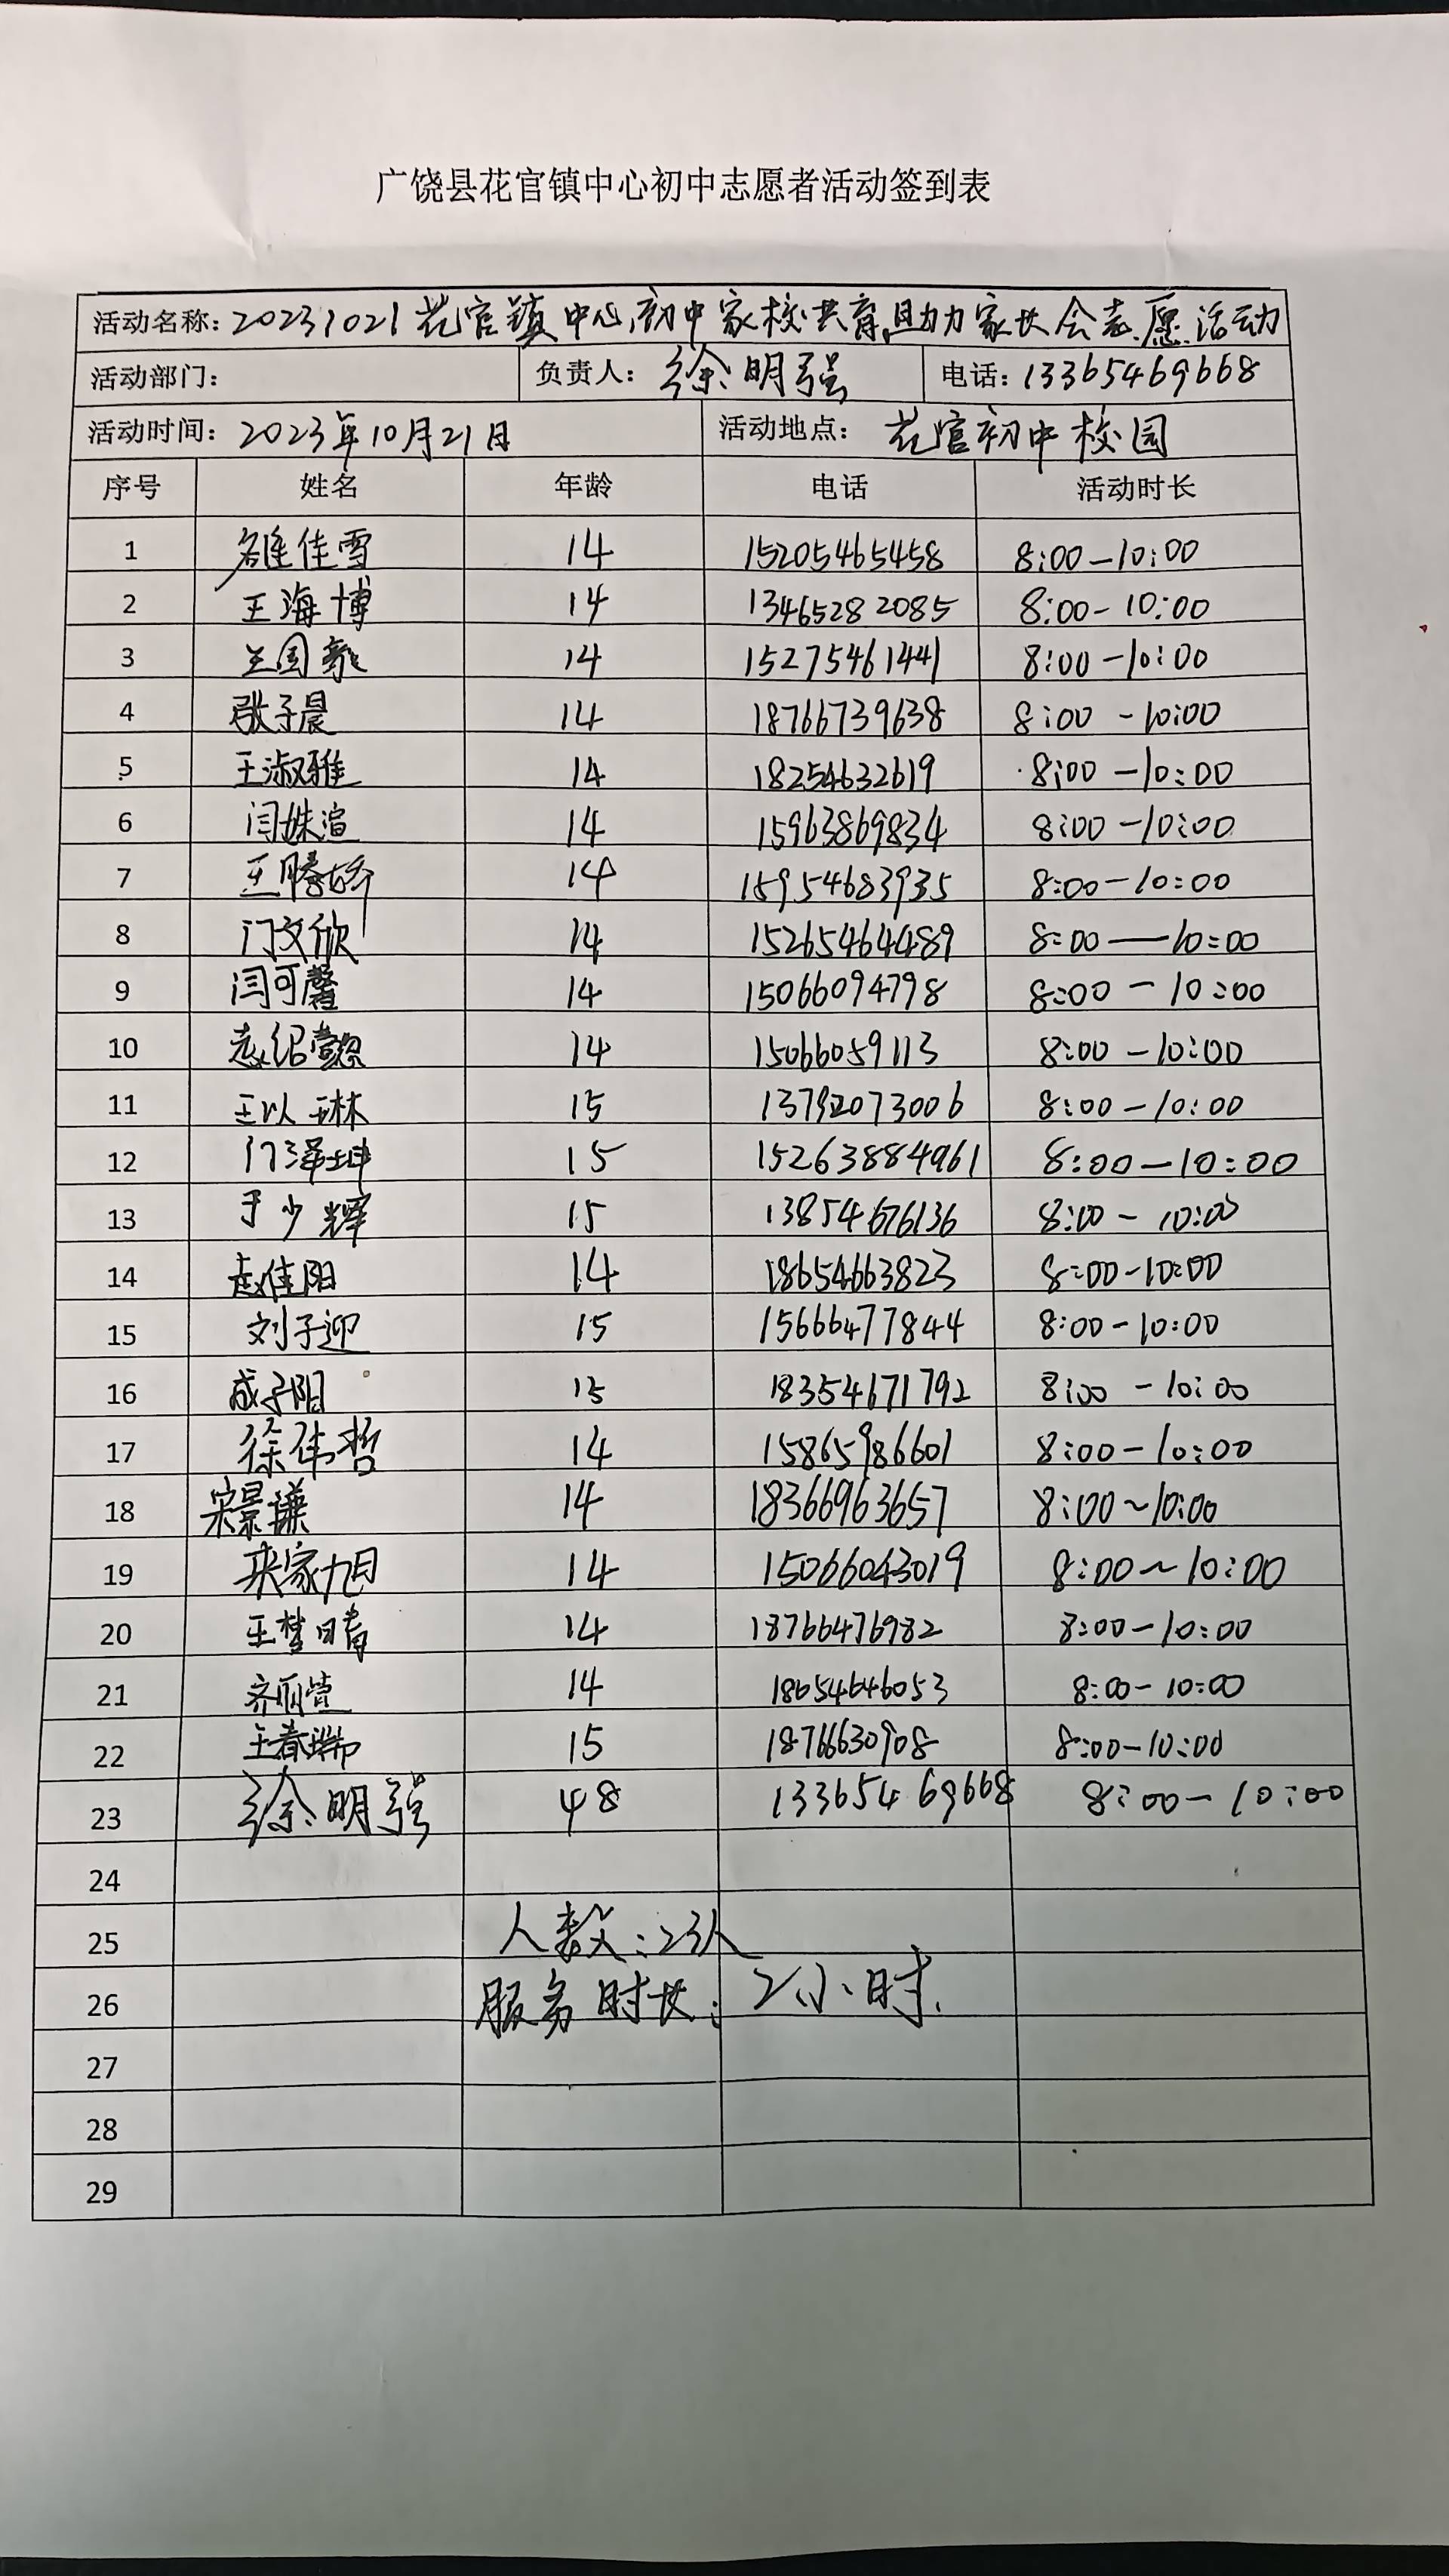 广饶县花官镇中心初中志愿者活动签到表
活动名称：20231021花官镇中心初中家校共育,助力家长会志愿活动
活动部门： 负责人：徐明强 电话：13365469668
活动时间：2023年10月21日 活动地点：花官初中校园
序号 姓名 年龄 电话 活动时长
1 雒佳雪 14 15205465458 8:00—10:00
2 王海博 14 13465282085 8:00-10:00
3 王国豪 14 15275461441 8:00-10:00
4 张子晨 14 18766739638 8:00-10:00
5 王淑雅 14 18254632619 8:00-10:00
6 闫姝渲 14 15963869834 8:00-10:00
7 王腾娇 14 15954683935 8:00-10:00
8 门文欣 14 15265464489 8:00—10:00
9 闫可馨 14 15066094798 8:00-10:00
10 14 15066059113 8:00-10:00
11 王以琳 15 13792073006 8:00-10:00
12 门泽坤 15 152638884961 8:00-10:00
13 于少辉 15 13854676136 8:00-10:00
14 赵佳阳 14 18654663823 8:00-10:00
15 刘子迎 15 15666477844 8:00-10:00
16 成子阳 15 18354671792 8:00-10:00
17 徐伟哲 14 15865986601 8:00-10:00
18 宋景谦 14 18366963657 8:00~10:00
19 家旭 14 15066043019 8:00~10:00
20 王梦晴 14 18766476982 8:00-10:00
21 齐丽萱 14 18654646053 8:00-10:00
22 王春瑞 15 18766630908 8:00-10:00
23 徐明强 48 13365469668 8:00-10:00
24
25 人数:23人
26 服务时长: 2小时.
27
28
29